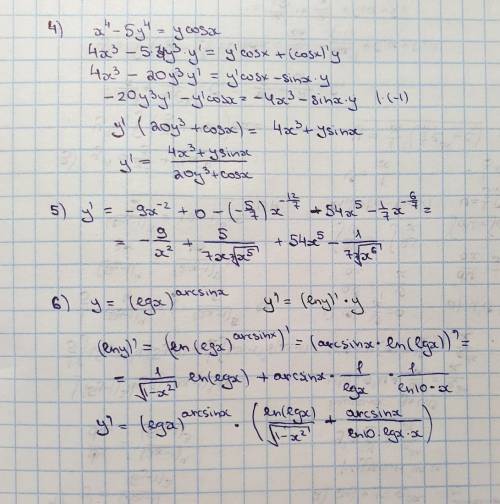 4) x⁴ - 5y⁴ = y cosx
4x³ - 5·4y³·y' = y'cosx + (cosx)'y
4x³ - 20y³y' = y'cosx - sinx·y
-20y³y' - y'cosx = -4x³ - sinx·y |·(-1)
y' (20y³ + cosx) = 4x³ + y sinx
y' = (4x³ + y sinx)/(20y³ + cosx)
5) y' = -9x⁻² + 0 - (-5/7)x^(-12/7) + 54x⁵ - 1/7 x^(-6/7) =
= -9/x² + 5/(7x ⁷√x⁵) + 54x⁵ - 1/(7 ⁷√x⁶)
6) y = (lgx)^(arcsinx) y' = (lny)'·y
(lny)' = (ln(lgx)^(arcsinx))' = (arcsinx·ln(lgx))' =
= 1/√(1-x²) ln(lgx) + arcsinx · 1/lgx · 1/(ln10·x)
y' = (lgx)^(arcsinx) · (ln(lgx)/√(1-x²) + arcsinx/(ln10·lgx·x))